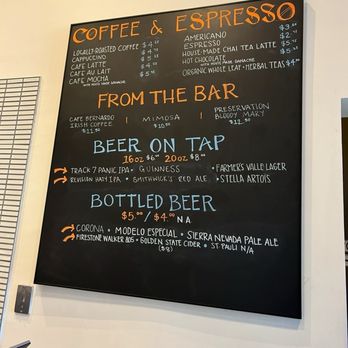 COFFEE & ESPRESSO
LOCALLY-ROASTED COFFEE $4
CAPPUCCINO $5
CAFE LATTE $5
CAFE AU LAIT $4
CAFE MOCHA $5
WITH HOUSE-MADE GANACHE
AMERICANO $3
ESPRESSO $2
HOUSE-MADE CHAI TEA LATTE $5
HOT CHOCOLATE $5
WITH HOUSE-MADE GANACHE
ORGANIC WHOLE LEAF + HERBAL TEAS $4
FROM THE BAR
CAFE BERNARDO IRISH COFFEE
MIMOSA
PRESERVATION BLOODY MARY
BEER ON TAP
16oz $6 20oz $8
TRACK 7 PANIC IPA • GUINNESS • FARMER'S VALLE LAGER
REVISION HAZY IPA • SMITHWICK'S RED ALE • STELLA ARTOIS
BOTTLED BEER
$5.00 / $4.00 N.A.
CORONA • MODELO ESPECIAL • SIERRA NEVADA PALE ALE
FIRESTONE WALKER 805 • GOLDEN STATE CIDER • ST. PAULI N/A
($8)